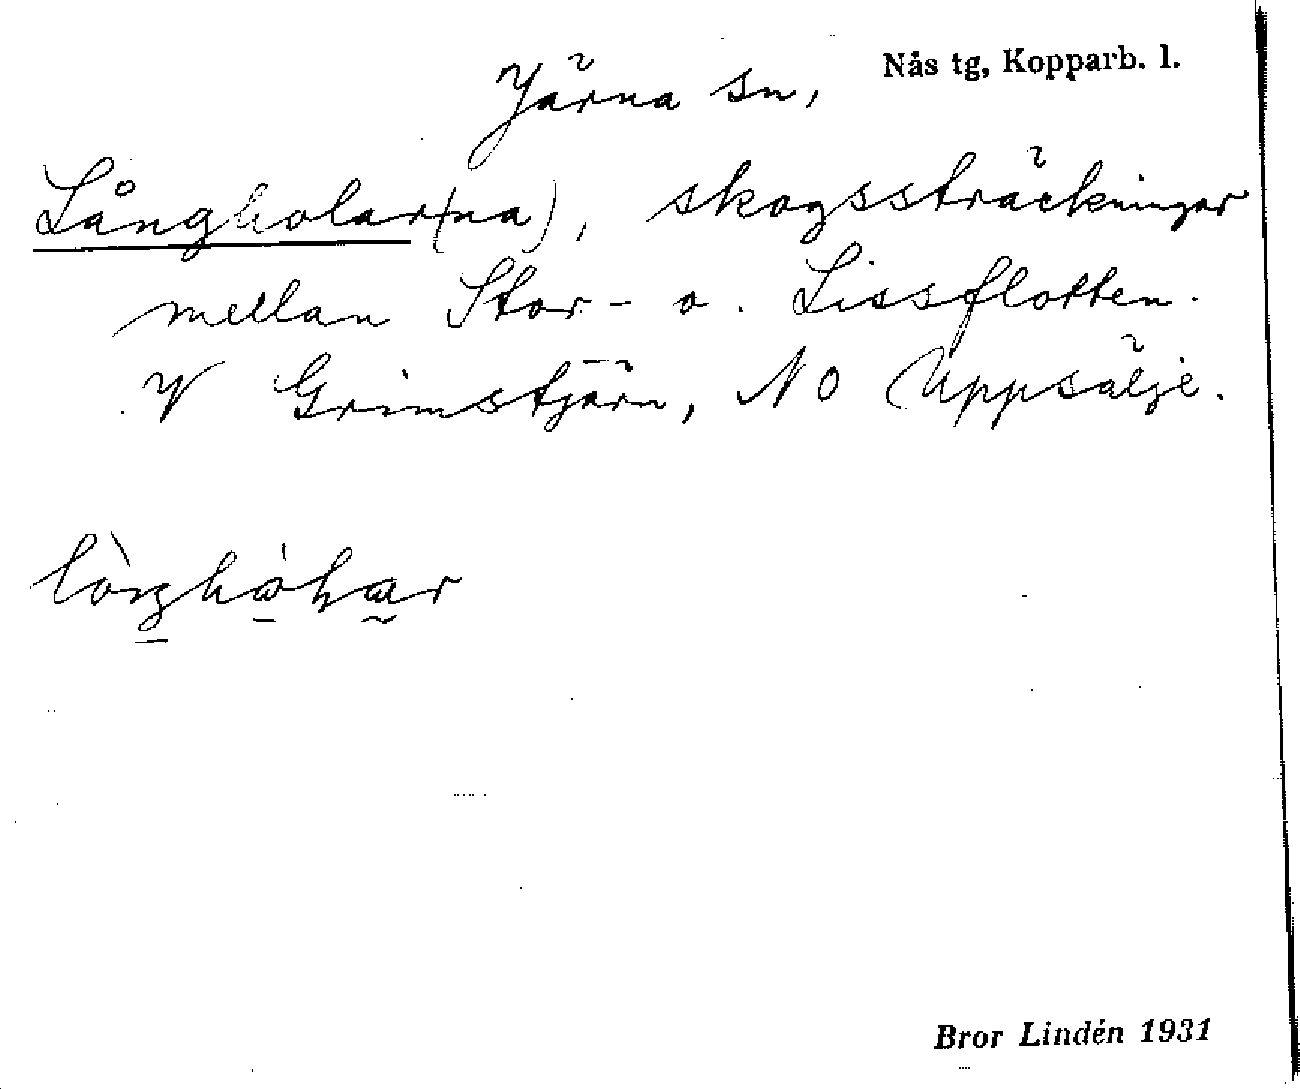 Nås tg, Kopparb. l.
Järna sn,
Långholar(na), skogssträckningar
mellan Stor- o. Lissflotten.
V Grimstjärn, NO Uppsälje.
Bror Lindén 1931